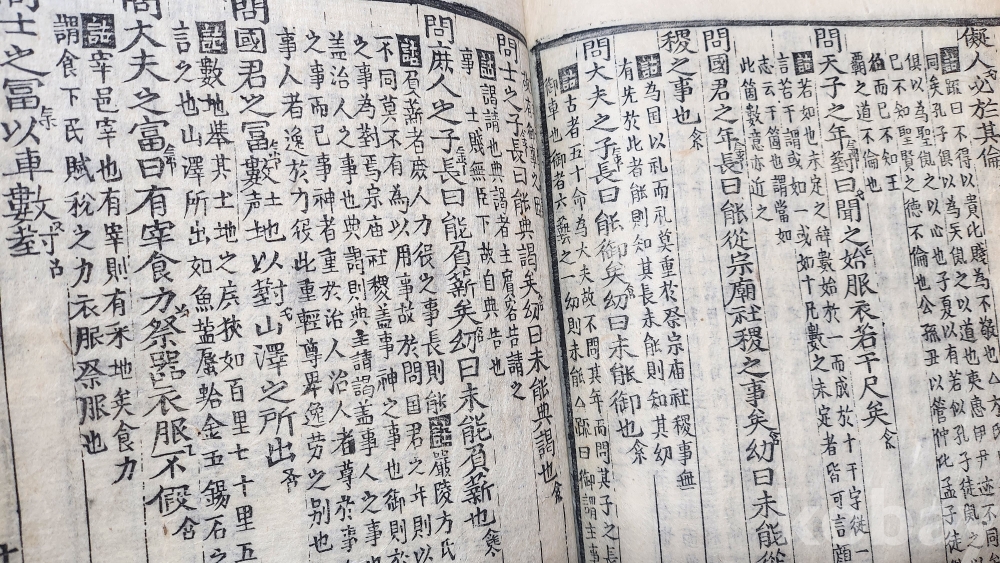 儗人必於其倫
註䟽曰不得以貴比賤為不敬也
同矣孔子俱以為矣俱之以道也夷惠伊尹迹不同
俱以為聖俱之以心也子夏以有若似孔子徒俱
已不知聖賢之德不倫也公孫丑以管仲比孟子徒
而已不知王
覇之道不倫也
問天子之年對曰聞之始服衣若干尺矣
註若如也未定之辭數始於一而成於十干字從一
言若干謂或如一或如十凡數之未定者皆可言顏
志云干箇也謂當如
此箇數意亦近之
問國君之年長曰能從宗廟社稷之事矣幼曰未能從
稷之事也
註為国以礼而礼莫重於祭宗庙社稷事無
有先於此者能則知其長未能則知其幼
問大夫之子長曰能御矣幼曰未能御也
註古者五十命為大夫故不問其年而問其子之長
御車也御者六藝之一幼則未能△䟽曰御謂主事
問士之子長曰能典謁矣幼曰未能典謁也
註謁請也典謁者主賓客告請之
事士賤無臣下故自典告也
問庶人之子長曰能負薪矣幼曰未能負薪也
註負薪者庶人力役之事長則能註嚴陵方氏
不同莫不有為以用事故於問国君之年則以
之事為對焉宗庙社稷盖事神之事也御則
之事而已事神者重於治人治人者尊於事
盖治人之事也典謁則典主請謁盖事人之事
事人者逸於力役此重輕尊卑逸劳之别也
問國君之富數地以對山澤之所出
註數地舉其土地之廣狹如百里七十里五
言之也山澤所出如魚盐蜃蛤金玉錫石之
問大夫之富曰有宰食力祭器衣服不假
註宰邑宰也有宰則有采地矣食力
謂食下民賦稅之力衣服祭服也
問士之富以車數對